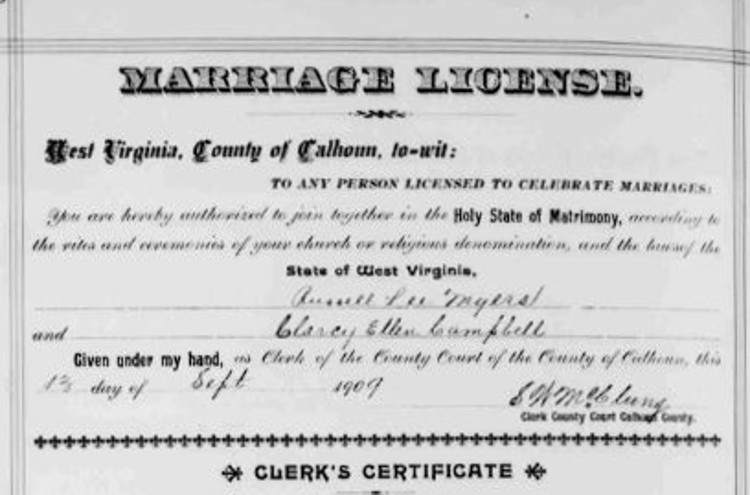 MARRIAGE LICENSE.
West Virginia, County of Calhoun, to-wit:
TO ANY PERSON LICENSED TO CELEBRATE MARRIAGES:
You are hereby authorized to join together in the Holy State of Matrimony, according to
the rites and ceremonies of your church or religious denomination, and the laws of the
State of West Virginia.
Russell Lee Myers
and Clarcy Ellen Campbell
Given under my hand, as Clerk of the County Court of the County of Calhoun, this
day of Sept 1909 S W McClung
Clerk County Court Calhoun County.
CLERK'S CERTIFICATE